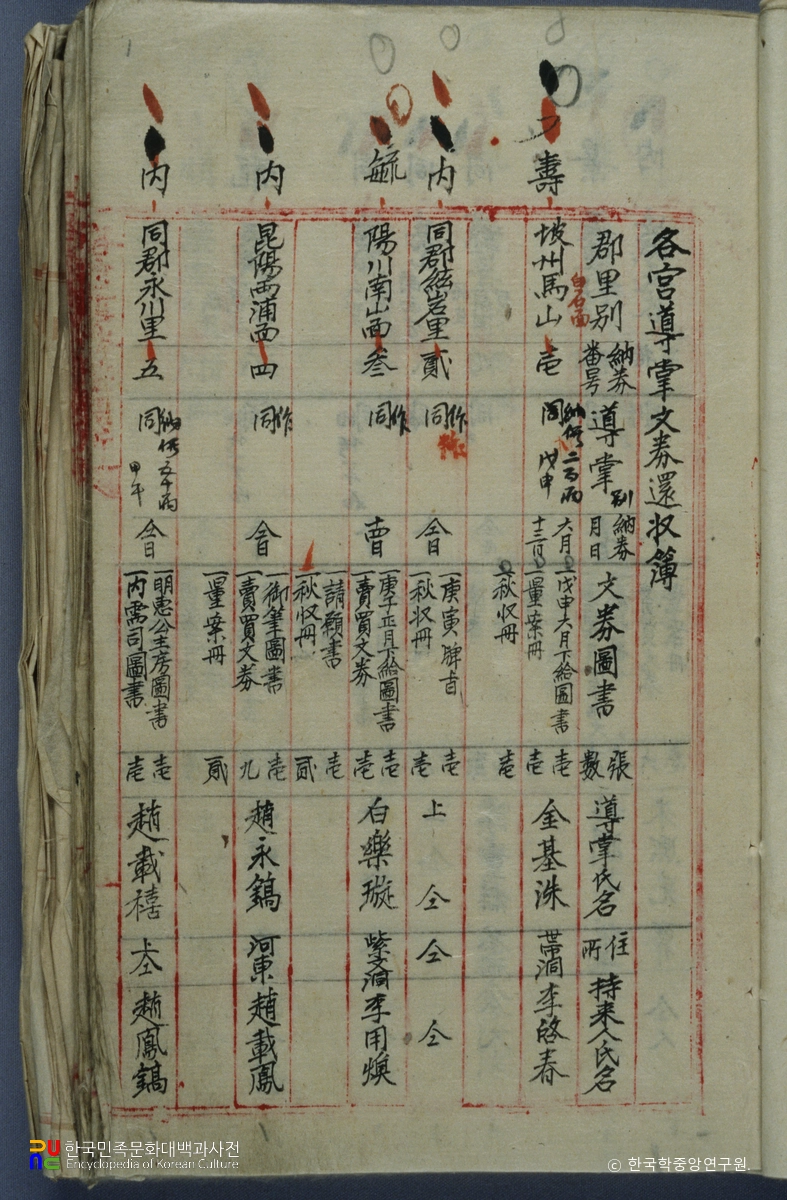 各宮導掌文券還收簿
郡里別 納券番号 導掌別 納券月日 文券圖書 張數 導掌氏名 住所 持来人氏名
壽 坡州馬山 白石面 壹 納価二百両 同 戊申 六月十三日 一戊申六月下給圖書 壹 一量案冊 壹 金基洙 帶洞 李啓春
一秋收冊 壹
内 同郡 里 貳 作同 仝日 一庚寅牌旨 壹 一秋收冊 壹 上仝 仝 仝
毓 陽川南山面 叄 作同 一庚子正月下給圖書 壹 一賣買文券 壹 白樂璇 紫文洞 李用煥
一請願書 壹 一秋收冊 貳
内 昆陽西浦面 四 作同 仝日 一御筆圖書 壹 一賣買文券 九 趙永鎬 河東 趙載鳳
一量案冊 貳
内 同郡永川里 五 納価五十両 同 甲午 仝日 一明惠公主房圖書 壹 一内需司圖書 壹 趙載禧 上仝 趙鳳鎬
한국민족문화대백과사전
Encyclopedia of Korean Culture
© 한국학중앙연구원